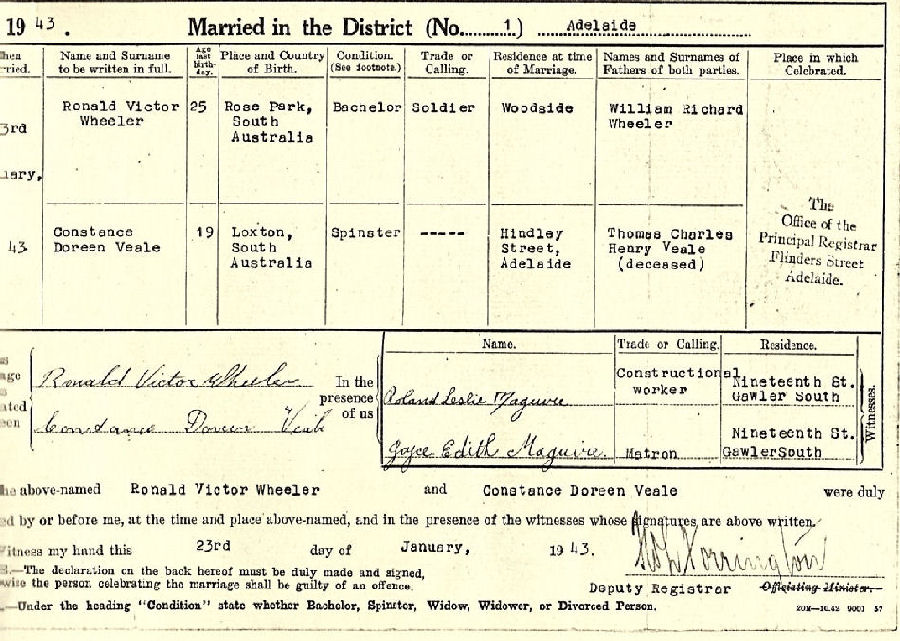 19 43 . Married in the District (No. 1.) Adelaide
Name and Surname to be written in full.
Age last birth-day.
Place and Country of Birth.
Condition. (See footnote.)
Trade or Calling.
Residence at time of Marriage.
Names and Surnames of Fathers of both parties.
Place in which Celebrated.
3rd
uary,
43
Ronald Victor Wheeler
25
Rose Park, South Australia
Bachelor
Soldier
Woodside
William Richard Wheeler
Constance Doreen Veale
19
Loxton, South Australia
Spinster
-----
Hindley Street, Adelaide
Thomas Charles Henry Veale (deceased)
The
Office of the
Principal Registrar
Flinders Street
Adelaide.
Ronald Victor Wheeler
Constance Doreen Veale
In the
presence
of us
Name. Trade or Calling. Residence.
Roland Leslie Maguire Constructional worker Nineteenth St. Gawler South
Joyce Edith Maguire. Matron Nineteenth St. GawlerSouth
Witnesses.
he above-named Ronald Victor Wheeler and Constance Doreen Veale were duly
ed by or before me, at the time and place above-named, and in the presence of the witnesses whose signatures are above written.
itness my hand this 23rd day of January, 19 43.
.—The declaration on the back hereof must be duly made and signed,
wise the person celebrating the marriage shall be guilty of an offence.
Deputy Registrar Officiating Minister.
.—Under the heading "Condition" state whether Bachelor, Spinster, Widow, Widower, or Divorced Person.
20M—10.42 9001 57